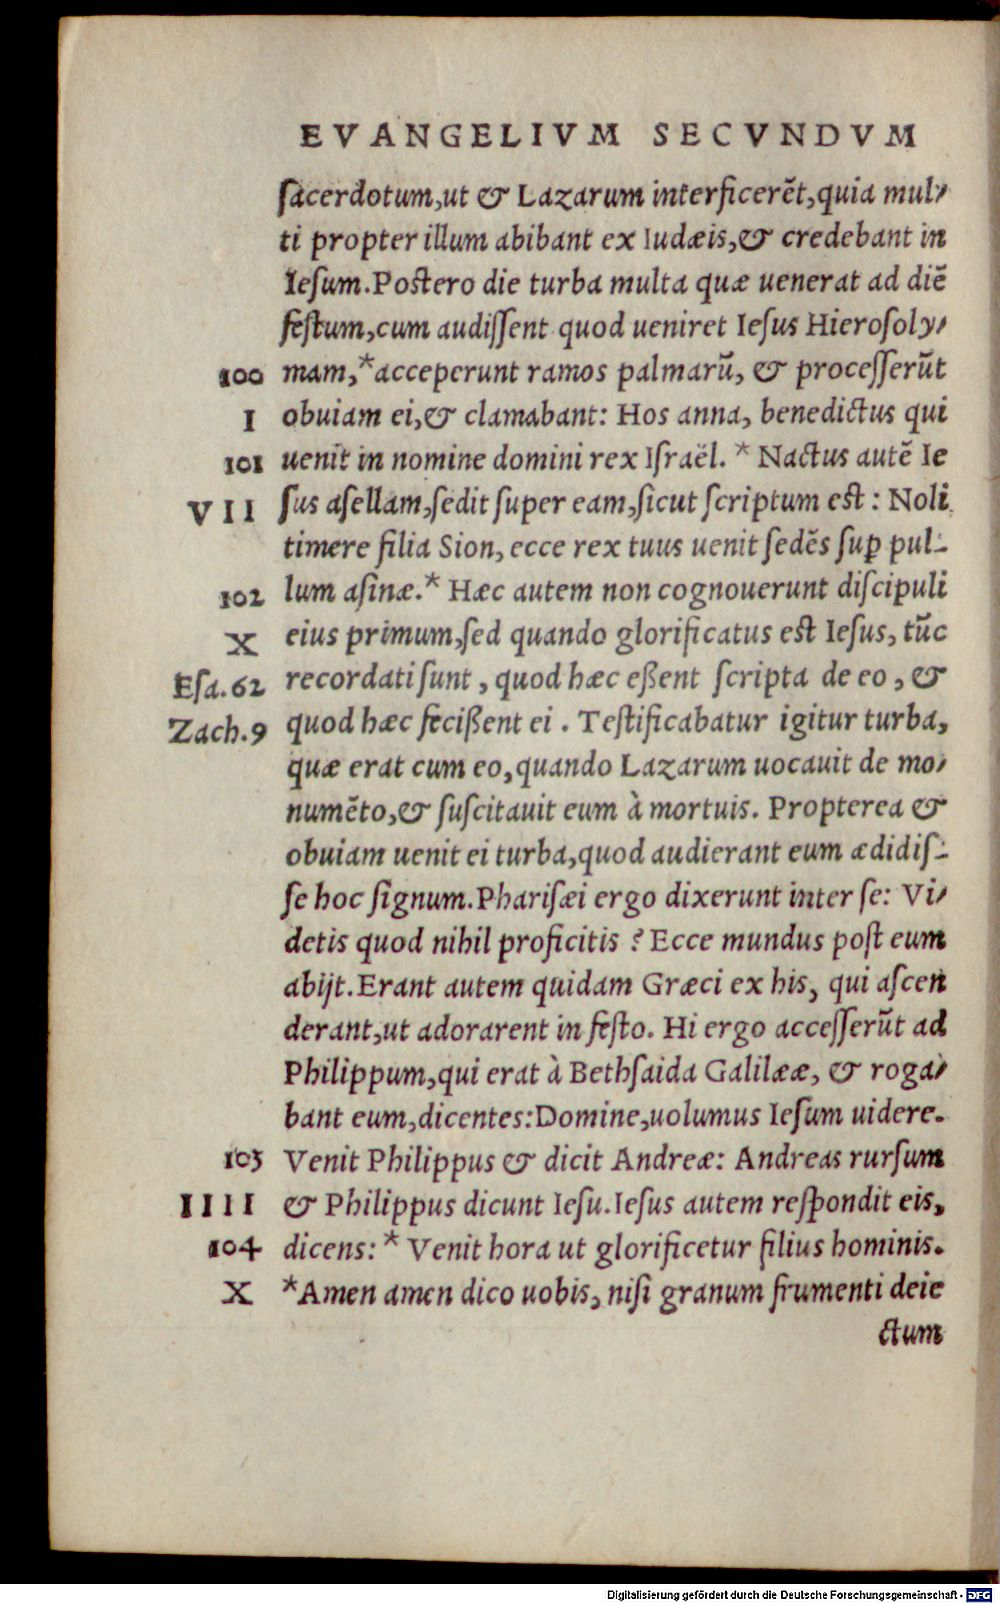 EVANGELIVM SECVNDVM
sacerdotum,ut & Lazarum interficerẽt,quia mul-
ti propter illum abibant ex Iudæis,& credebant in
Iesum.Postero die turba multa quæ uenerat ad diẽ
festum,cum audissent quod ueniret Iesus Hierosoly-
100 mam,*acceperunt ramos palmarũ, & processerũt
I obuiam ei,& clamabant: Hos anna, benedictus qui
101 uenit in nomine domini rex Israël. * Nactus autẽ Ie
VII sus asellam,sedit super eam,sicut scriptum est : Noli
timere filia Sion, ecce rex tuus uenit sedẽs suꝑ pul-
102 lum asinæ.* Hæc autem non cognouerunt discipuli
X eius primum,sed quando glorificatus est Iesus, tũc
Esa.62 recordati sunt , quod hæc eßent scripta de eo , &
Zach.9 quod hæc fecißent ei . Testificabatur igitur turba,
quæ erat cum eo,quando Lazarum uocauit de mo-
numẽto,& suscitauit eum à mortuis. Propterea &
obuiam uenit ei turba,quod audierant eum ædidis-
se hoc signum.Pharisæi ergo dixerunt inter se: Vi-
detis quod nihil proficitis ? Ecce mundus post eum
abijt.Erant autem quidam Græci ex his, qui ascen
derant,ut adorarent in festo. Hi ergo accesserũt ad
Philippum,qui erat à Bethsaida Galilææ, & roga-
bant eum,dicentes:Domine,uolumus Iesum uidere.
103 Venit Philippus & dicit Andreæ: Andreas rursum
IIII & Philippus dicunt Iesu.Iesus autem respondit eis,
104 dicens: * Venit hora ut glorificetur filius hominis.
X *Amen amen dico uobis, nisi granum frumenti deie
ctum
Digitalisierung gefördert durch die Deutsche Forschungsgemeinschaft - DFG